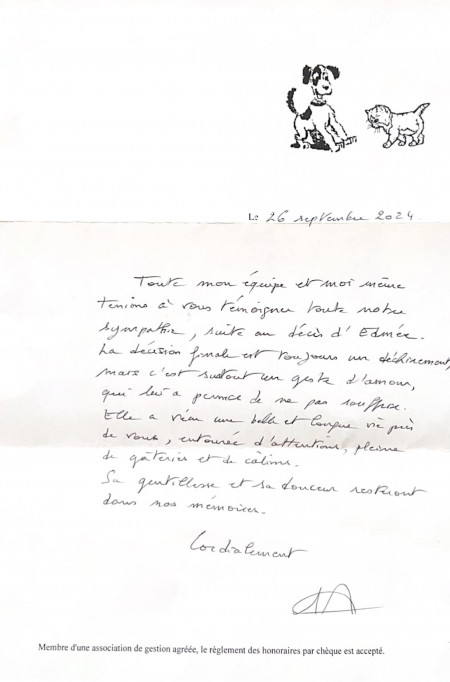 Le 26 septembre 2024.
Toute mon équipe et moi même
tenions à vous témoigner toute notre
sympathie, suite au décès d'Edmée.
La décision finale est toujours un déchirement,
mais c'est surtout un geste d'amour,
qui lui a permis de ne pas souffrir.
Elle a vécu une belle et longue vie près
de vous, entourée d'attentions, pleine
de gâteries et de câlins.
Sa gentillesse et sa douceur resteront
dans nos mémoires.
Cordialement
Membre d'une association de gestion agréée, le règlement des honoraires par chèque est accepté.